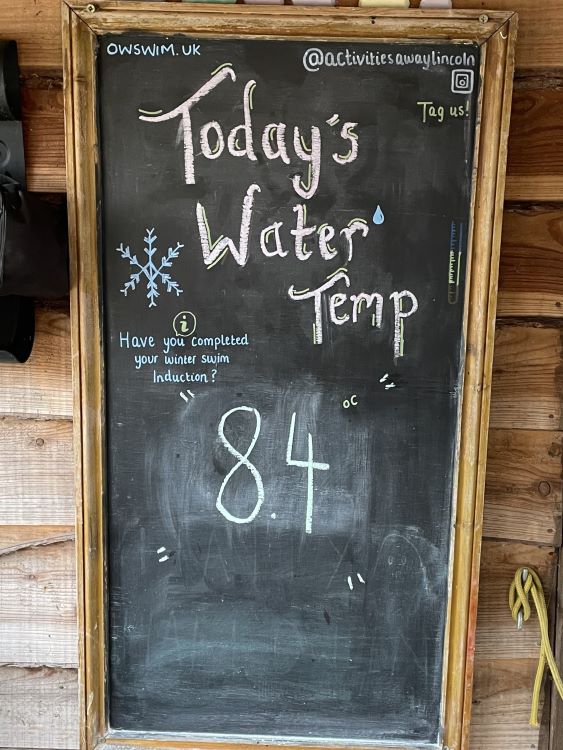 OWSWIM.UK
@activitiesawaylincoln
Tag us!
Today's
Water
Temp
i
Have you completed
your winter swim
Induction?
°C
8.4